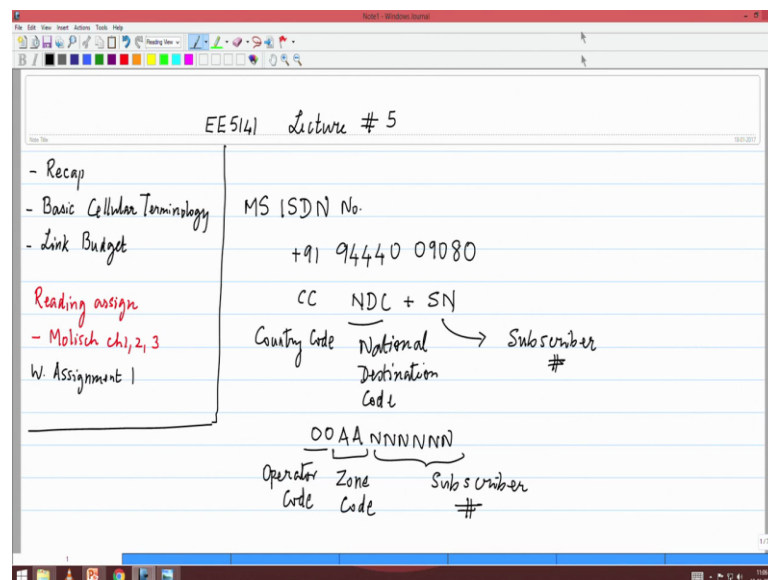 Note1 - Windows Journal
File Edit View Insert Actions Tools Help
Reading View
B I
EE5141 Lecture # 5
Note Title
18-01-2017
- Recap
- Basic Cellular Terminology
- Link Budget
Reading assign
- Molisch ch1, 2, 3
W. Assignment 1
MS ISDN No.
+91 94440 09080
CC NDC + SN
Country Code National Destination Code
Subscriber #
OOAANNNNNN
Operator Code Zone Code Subscriber #
1